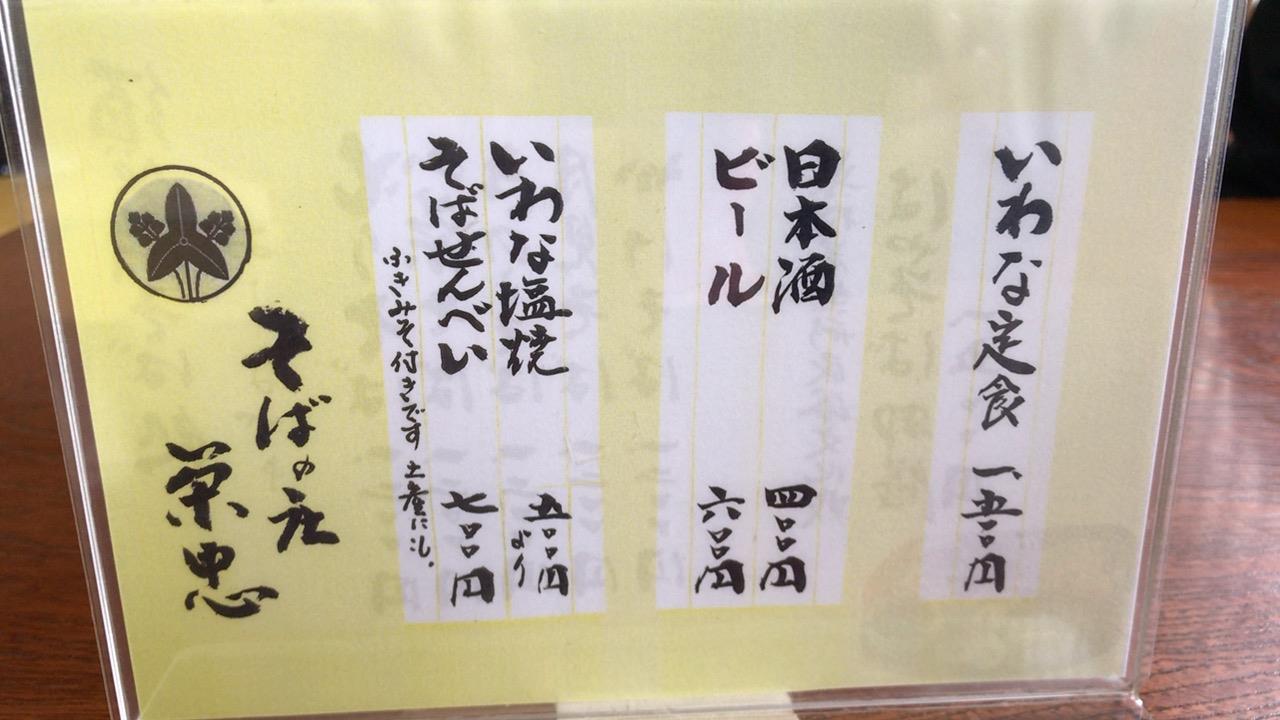 いわな定食 一、五〇〇円
日本酒 四〇〇円
ビール 六〇〇円
いわな塩焼 五〇〇円より
そばせんべい 七〇〇円
ふきみそ付きです 土産にも。
そばの庄
栄忠